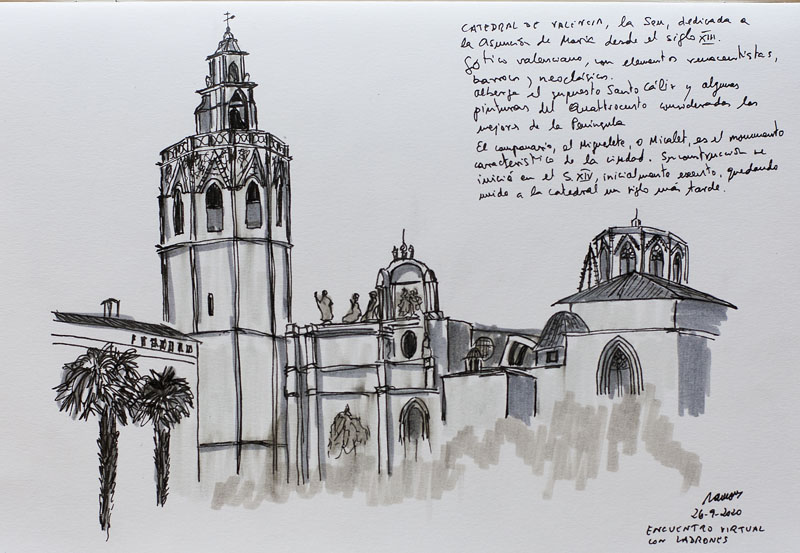 CATEDRAL DE VALENCIA, la Seu, dedicada a
la Asunción de María desde el siglo XIII.
Gótico valenciano, con elementos renacentistas,
barroco y neoclásico.
alberga el supuesto Santo Cáliz y algunas
pinturas del Quattrocento consideradas las
mejores de la Península
El campanario, el Miguelete, o Micalet, es el monumento
característico de la ciudad. Su construcción se
inició en el S. XIV, inicialmente exento, quedando
unido a la catedral un siglo más tarde.
26-9-2020
ENCUENTRO VIRTUAL
CON LADRONES